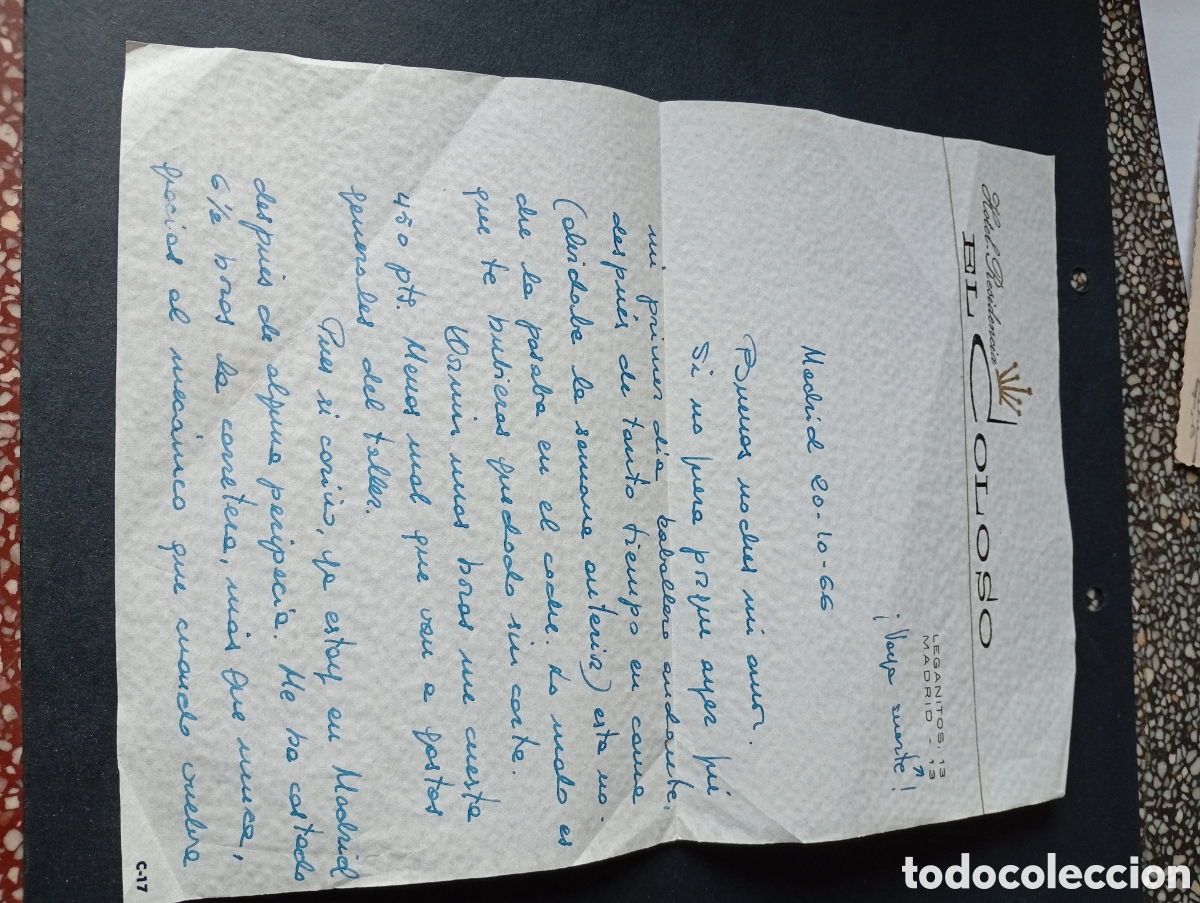 Hotel Residencia
EL COLOSO
LEGANITOS, 13
MADRID - 13
¡Vaya suerte!
Madrid 20-10-66
Buenas noches mi amor.
Si no fuera porque ayer fui
mi primer día kaballero andante,
después de tanto tiempo en cama
(olvidaba la semana anterior) esta no-
che la pasaba en el coche. Lo malo es
que te hubieras quedado sin carta.
Dormir unas horas me cuesta
450 pts. Menos mal que van a gastos
generales del taller.
Pues si cariño, ya estoy en Madrid
después de alguna peripecia. Me ha costado
6 1/2 horas la carretera, más que nunca,
gracias al mecánico que cuando vuelva
C-17
todocoleccion